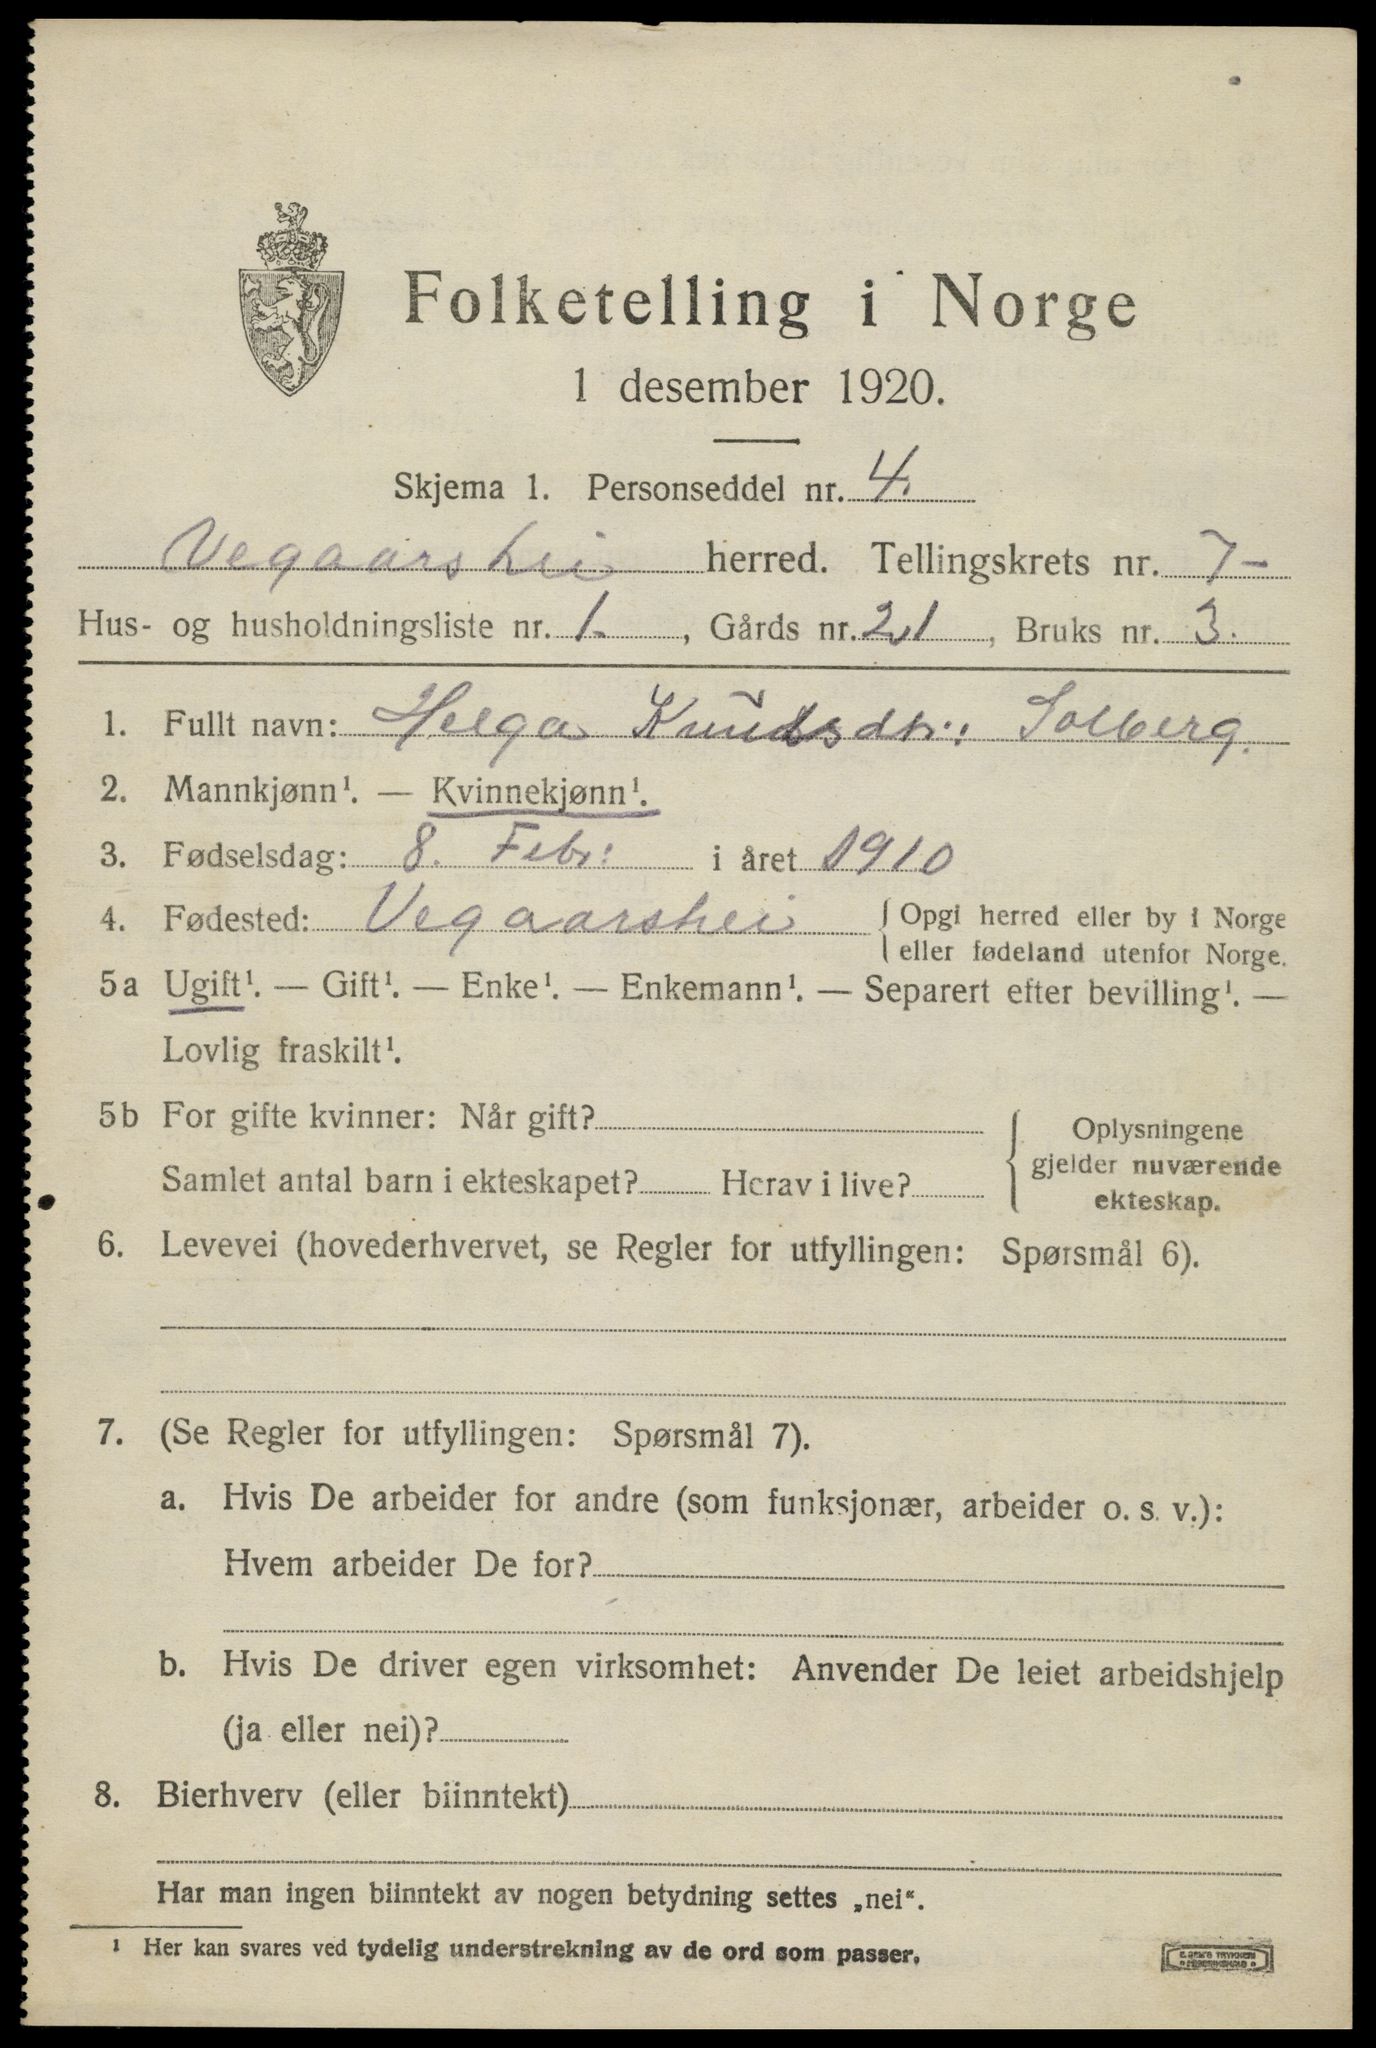 Folketelling i Norge
1 desember 1920.
Skjema 1. Personseddel nr. 4.
Vegaarshei herred. Tellingskrets nr. 7-
Hus- og husholdningsliste nr. 1. , Gårds nr. 21 , Bruks nr. 3.
1. Fullt navn: Helga Knudsdtr: Solberg.
2. Mannkjønn¹. — Kvinnekjønn¹.
3. Fødselsdag: 8. Febr: i året 1910
4. Fødested: Vegaarshei { Opgi herred eller by i Norge
eller fødeland utenfor Norge.
5a Ugift¹. — Gift¹. — Enke¹. — Enkemann¹. — Separert efter bevilling¹. —
Lovlig fraskilt¹.
5b For gifte kvinner: Når gift?
Samlet antal barn i ekteskapet? Herav i live?
Oplysningene
gjelder nuværende
ekteskap.
6. Levevei (hovederhvervet, se Regler for utfyllingen: Spørsmål 6).
7. (Se Regler for utfyllingen: Spørsmål 7).
a. Hvis De arbeider for andre (som funksjonær, arbeider o. s. v.):
Hvem arbeider De for?
b. Hvis De driver egen virksomhet: Anvender De leiet arbeidshjelp
(ja eller nei)?
8. Bierhverv (eller biinntekt)
Har man ingen biinntekt av nogen betydning settes „nei“.
¹ Her kan svares ved tydelig understrekning av de ord som passer.